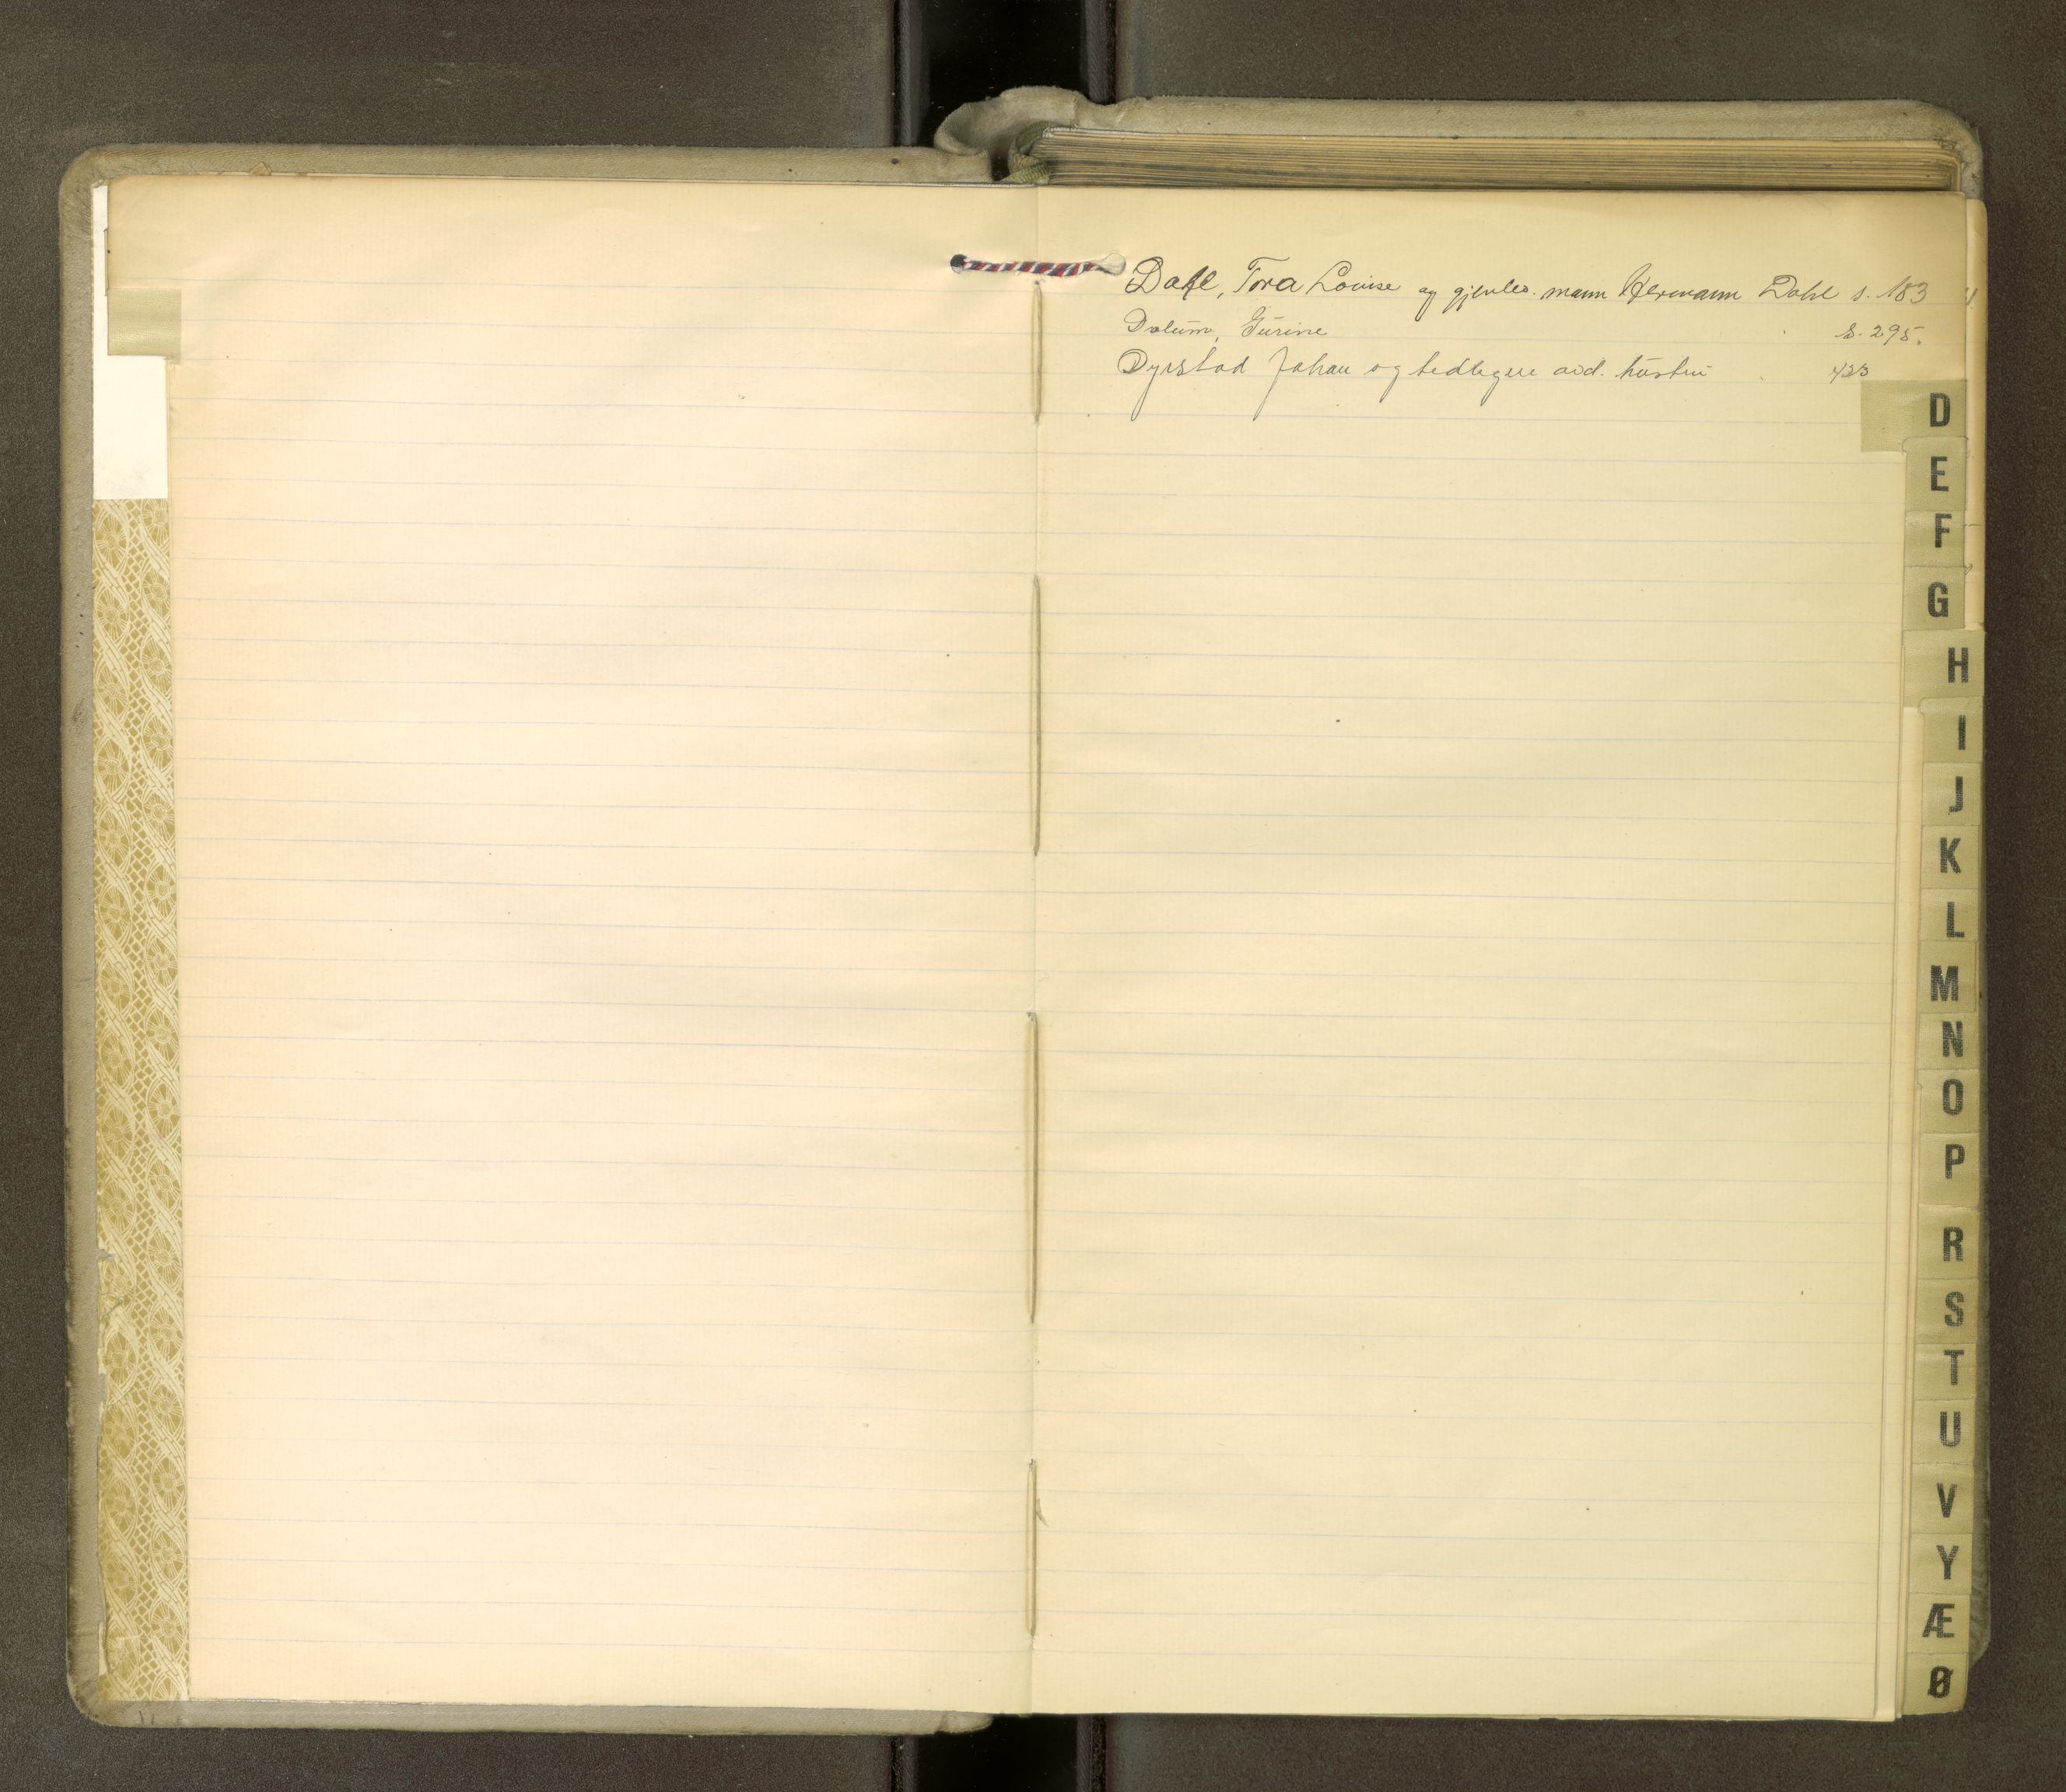 Dahl, Tora Louise og gjenlev. mann Hermann Dahl s. 183
Dalum, Gurine s. 295.
Dyrstad Johan og tidligere avd. hustru 423
D
E
F
G
H
I
J
K
L
M
N
O
P
R
S
T
U
V
Y
Æ
Ø